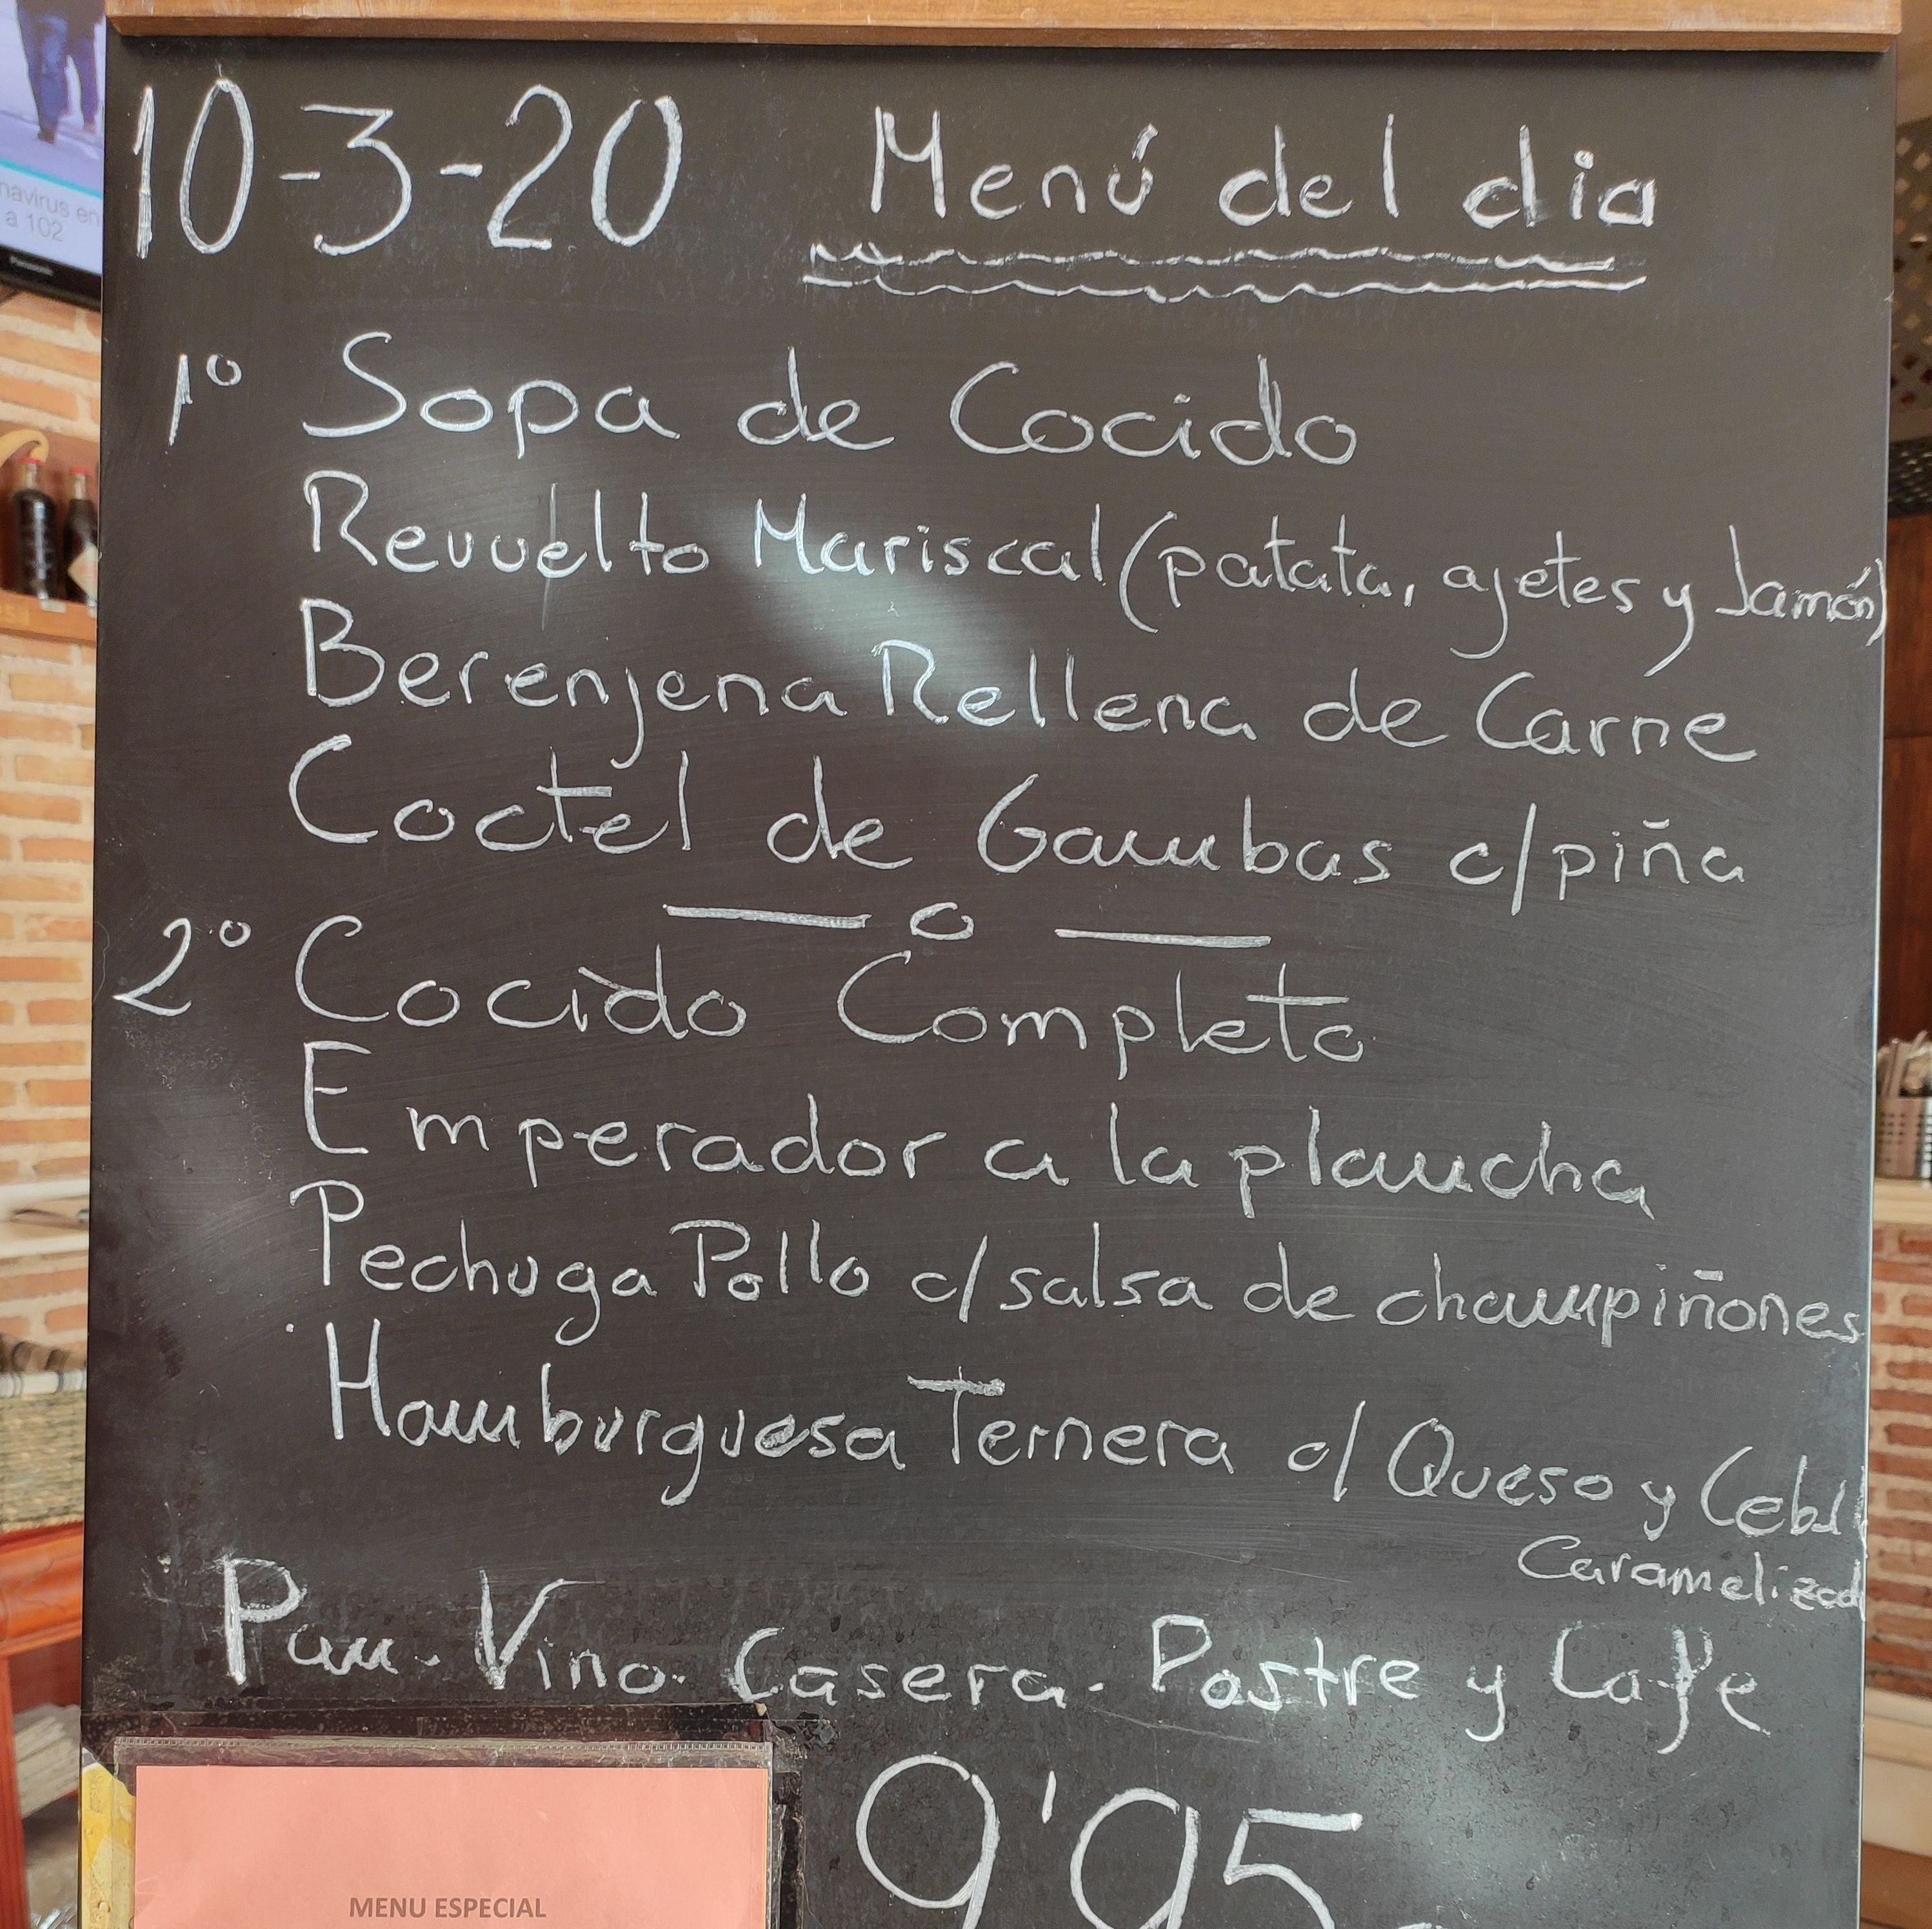 10-3-20 Menú del dia
1º Sopa de Cocido
Revuelto Mariscal (patata, ajetes y Jamón)
Berenjena Rellena de Carne
Coctel de Gambas c/piña
— o —
2º Cocido Completo
Emperador a la plancha
Pechuga Pollo c/salsa de champiñones
Hamburguesa Ternera c/ Queso y
Pan. Vino. Casera. Postre y Cafe
9'95
MENU ESPECIAL
navirus en
a 102
Panasonic